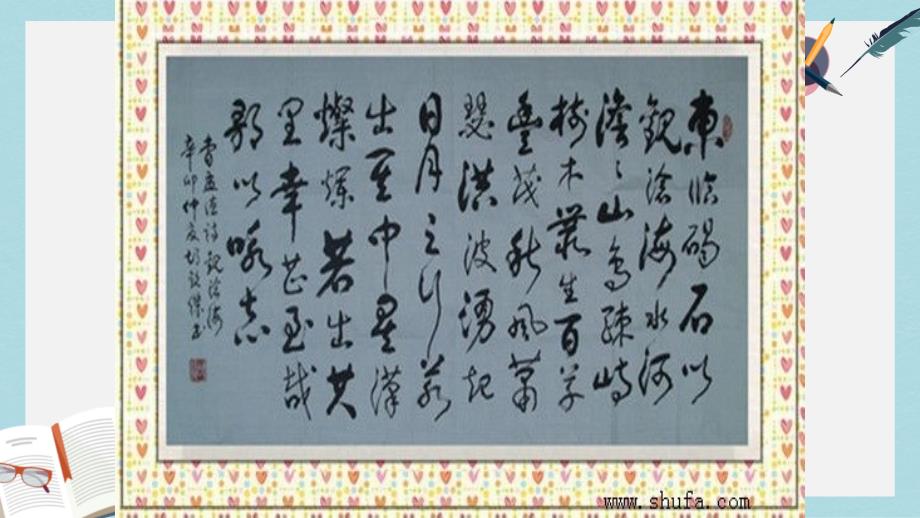 東臨碣石以
觀滄海水河
澹〻山島竦峙
樹木叢生百草
豐茂秋風蕭
瑟洪波湧起
日月之行若
出其中星漢
燦爛若出其
里幸甚至哉
歌以咏志
曹孟德詩觀滄海
辛卯仲夏
www.shufa.com